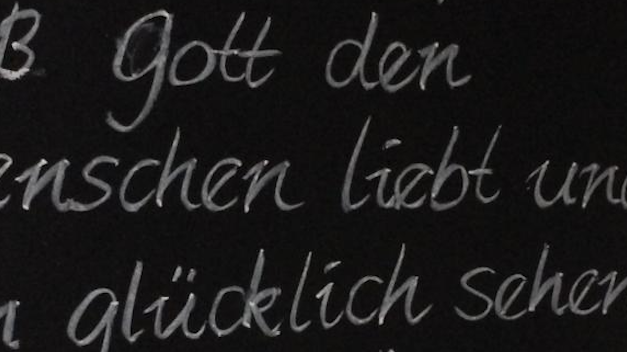 ß Gott den
enschen liebt und
n glücklich sehen